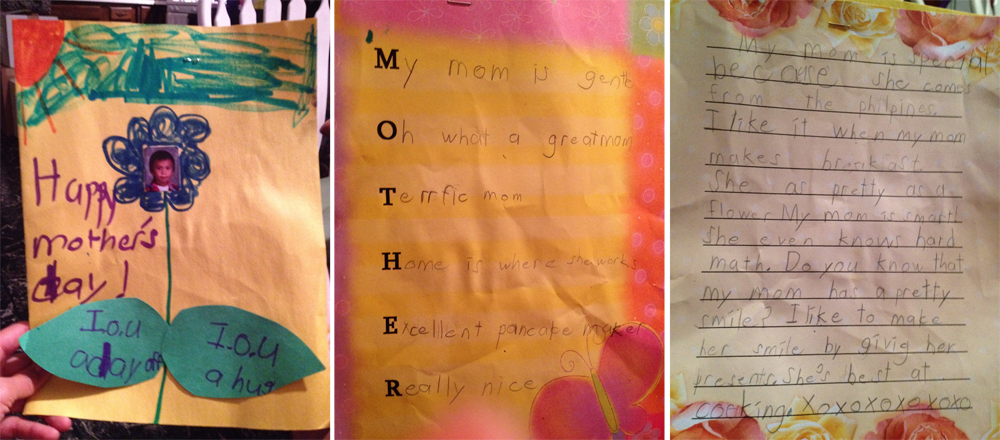 Happy
mother's
day!
I.o.u
a day off
I.o.u
a hug
My mom is gentle
Oh what a great mom
Terrfic mom
Home is where she works
Excellent pancake maker
Really nice
My mom is special
because she comes
from the philpines.
I like it when my mom
makes breakfast.
She as pretty as a
flower. My mom is smart!
She even knows hard
math. Do you know that
my mom has a pretty
smile? I like to make
her smile by givig her
presents. She's best at
cooking. xoxoxoxoxoxo